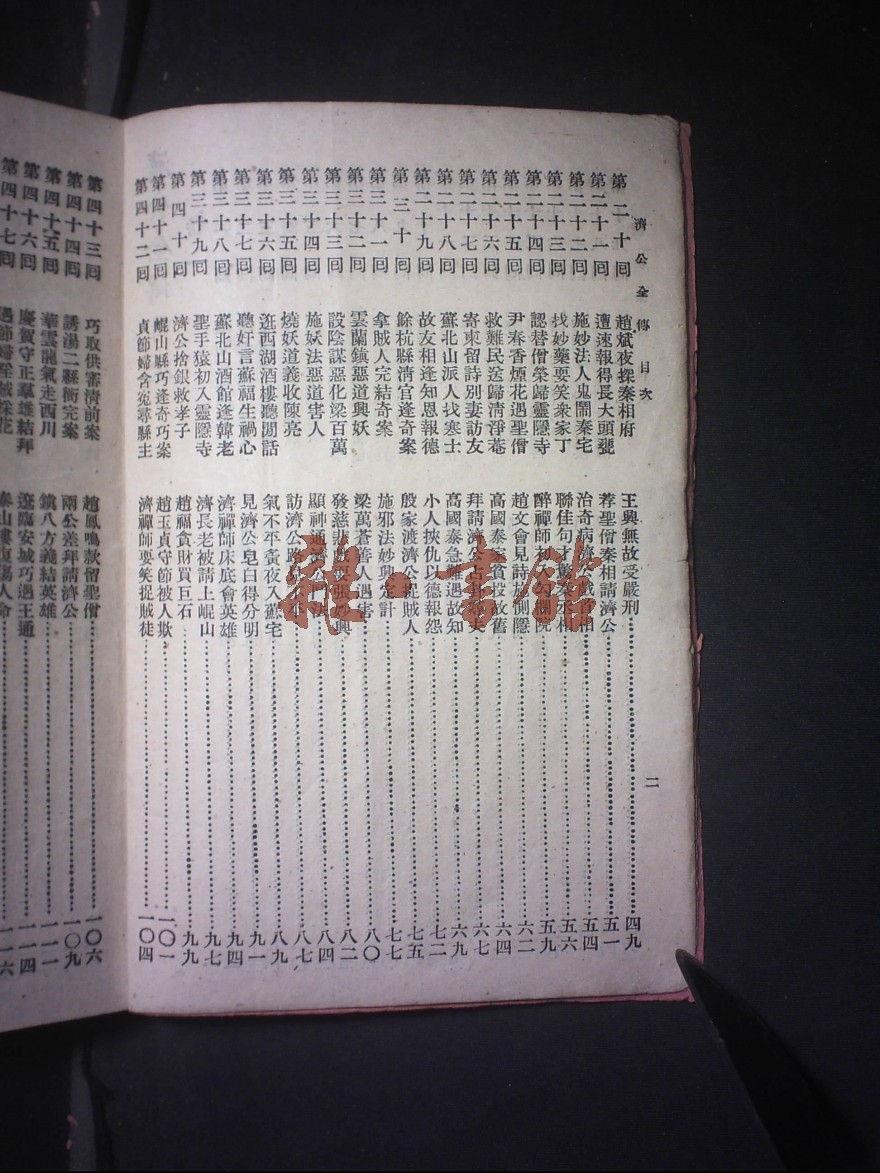 濟公全傳 目次 二
第二十回 趙斌夜探秦相府 王興無故受嚴刑 四九
第二十一回 遭速報得長大頭甕 荐聖僧秦相請濟公 五一
第二十二回 施妙法人鬼鬧秦宅 治奇病濟公戲首相 五四
第二十三回 找妙藥耍笑衆家丁 聯佳句才驚秦丞相 五六
第二十四回 認替僧榮歸靈隱寺 醉禪師初入勾欄院 五九
第二十五回 尹春香煙花遇聖僧 趙文會見詩施惻隱 六二
第二十六回 救難民送歸清淨菴 高國泰家貧投故舊 六四
第二十七回 寄柬留詩別妻訪友 拜請濟公占卦尋夫 六七
第二十八回 蘇北山派人找寒士 高國泰急難遇故知 六九
第二十九回 故友相逢知恩報德 小人挾仇以德報怨 七二
第三十回 餘杭縣清官逢奇案 殷家渡濟公捉賊人 七五
第三十一回 拿賊人完結奇案 施邪法妙興定計 七七
第三十二回 雲蘭鎮惡道興妖 梁萬蒼善人遇害 八〇
第三十三回 設陰謀惡化梁百萬 發慈悲戲耍張妙興 八二
第三十四回 施妖法惡道害人 顯神通濟公 法 八四
第三十五回 燒妖道義收陳亮 訪濟公路見不平 八七
第三十六回 逛西湖酒樓聽閒話 氣不平黃夜入蘇宅 八九
第三十七回 聽奸言蘇福生禍心 見濟公皂白得分明 九一
第三十八回 蘇北山酒館逢韓老 濟禪師床底會英雄 九四
第三十九回 聖手猿初入靈隱寺 濟長老被請上崐山 九七
第四十回 濟公捨銀救孝子 趙福貪財買巨石 九九
第四十一回 崐山縣巧逢奇巧案 趙玉貞守節被人欺 一〇一
第四十二回 貞節婦含冤尋縣主 濟禪師耍笑捉賊徒 一〇四
第四十三回 巧取供審清前案 趙鳳鳴款留聖僧 一〇六
第四十四回 誘湯二縣衙完案 兩公差拜請濟公 一〇九
第四十五回 華雲龍氣走西川 鎮八方義結英雄 一一一
第四十六回 慶賀守正羣雄結拜 逛臨安城巧遇王通 一一四
第四十七回 遇節婦淫賊採花 泰山樓復傷人命 一一六
雜·書館